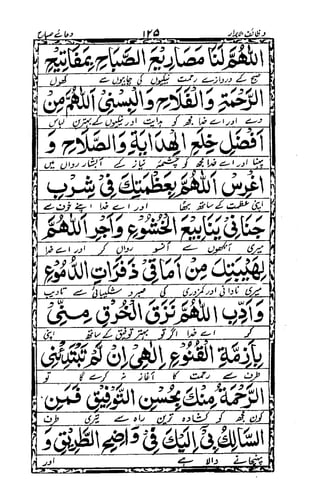 وظائف الابرار ۱۲۵ دعائے صباح
اللهم لنا مصاريع الصباح بمفاتيح
صبح کے دروازے رحمت نیکیوں کی چابیوں سے کھول
الرحمة والفلاح والبسنى اللهم من
دے اور اے خدا مجھ کو ہدایت اور نیکوں کے بہترین لباس
افضل خلع الهداية والصلاح و
پہنا اور اے خدا مجھ کو چشمہ نیاز کے آبشار رواں میں
اغرس اللهم بعظمتك فى شرب
اپنی عظمت کے ساتھ بٹھا اور اے خدا اپنے خوف سے
جنانى ينابيع الخشوع واجر اللهم
میری آنکھوں سے آنسو رواں کر اور اے خدا
لهيبتك من اماقى ذفرات الدموع
میری نادانی اور کمزوری کی صبر و شکیبائی سے تادیب
وادب اللهم نزق الخرق منى
کر اے خدا اگر تو بہتر توفیق کے ساتھ اپنی
بازمة القنوع الهى ان لم تبتدئنى
طرف سے رحمت کا آغاز نہ کرے گا تو
الرحمة منك بحسن التوفيق فمن
کون مجھ کو کشادہ ترین راہ سے تیری طرف
السالك بى اليك فى واضح الطريق و
پہنچانے والا ہے اور